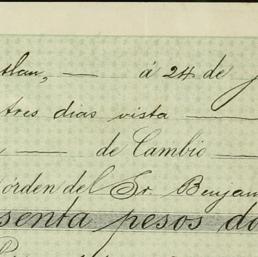 tlan, — á 24 de
tres dias vista —
— de Cambio —
órden del Sr. Benjam
senta pesos do